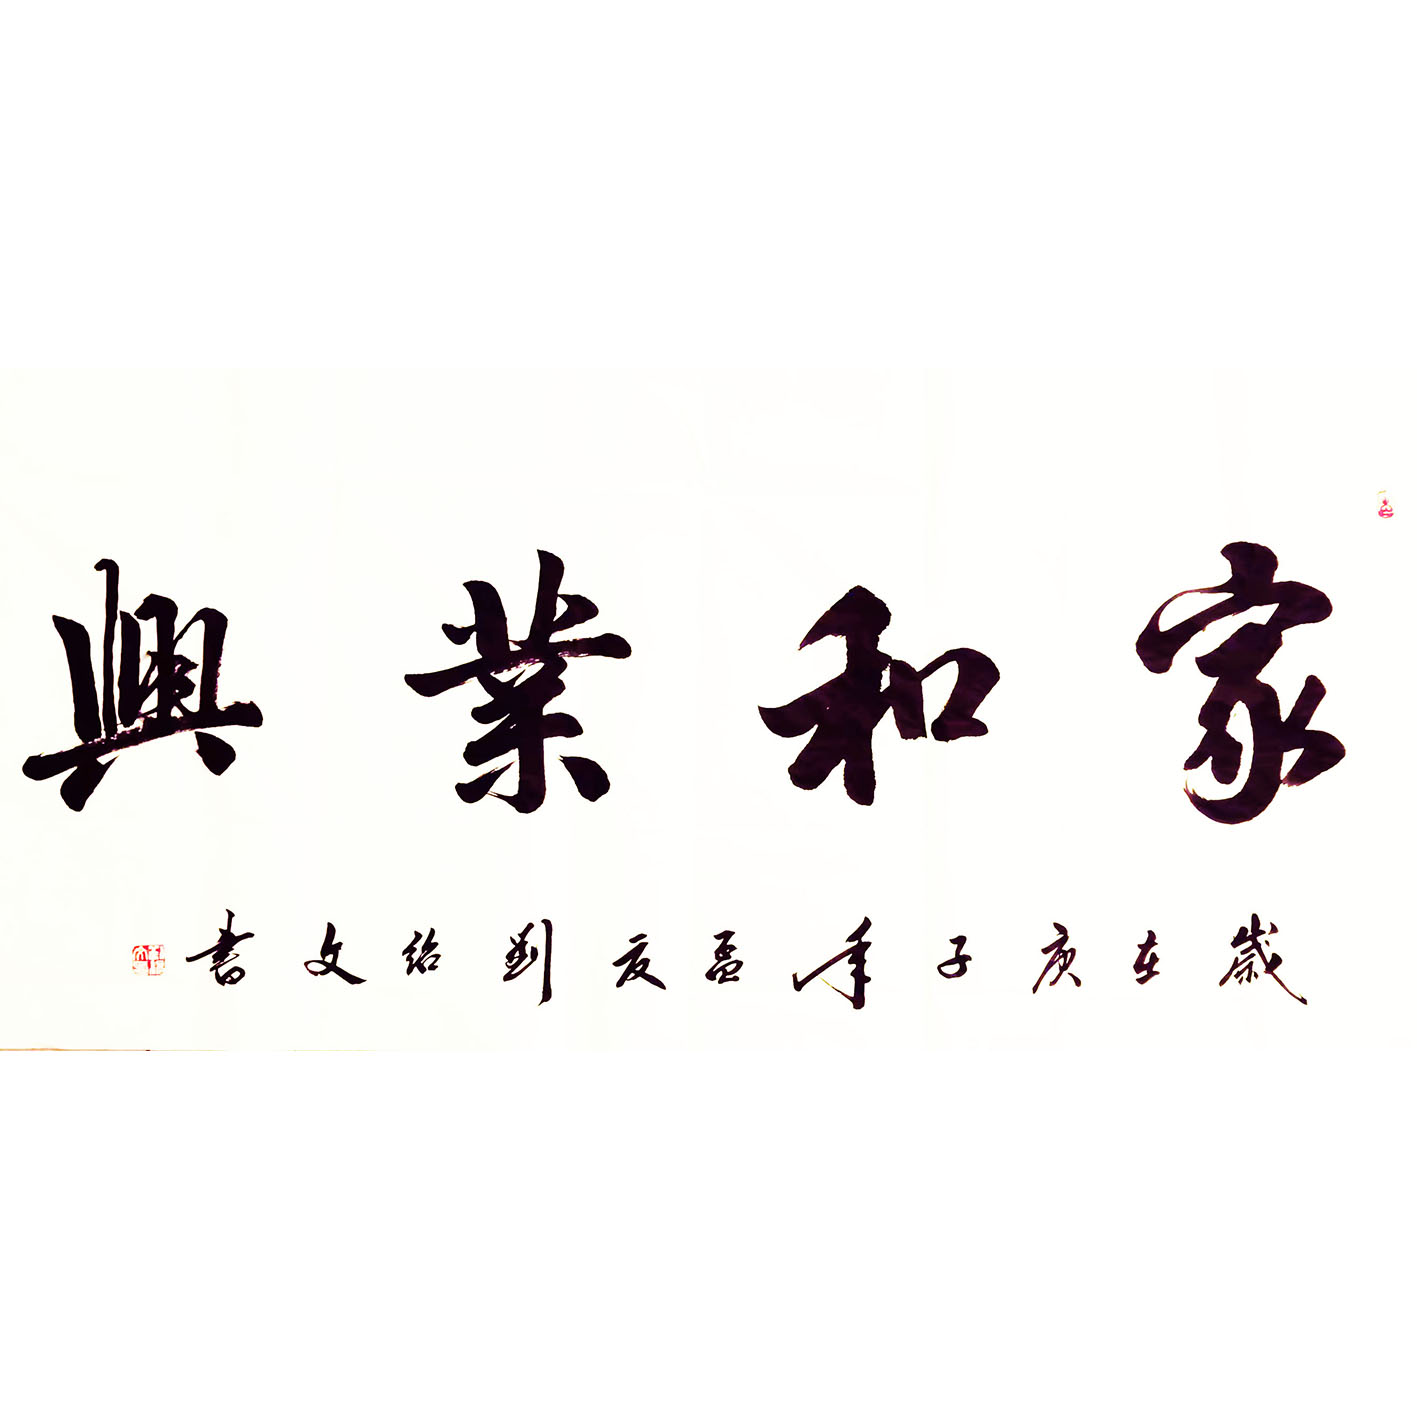 家和業興
歲在庚子年孟夏劉紹文書